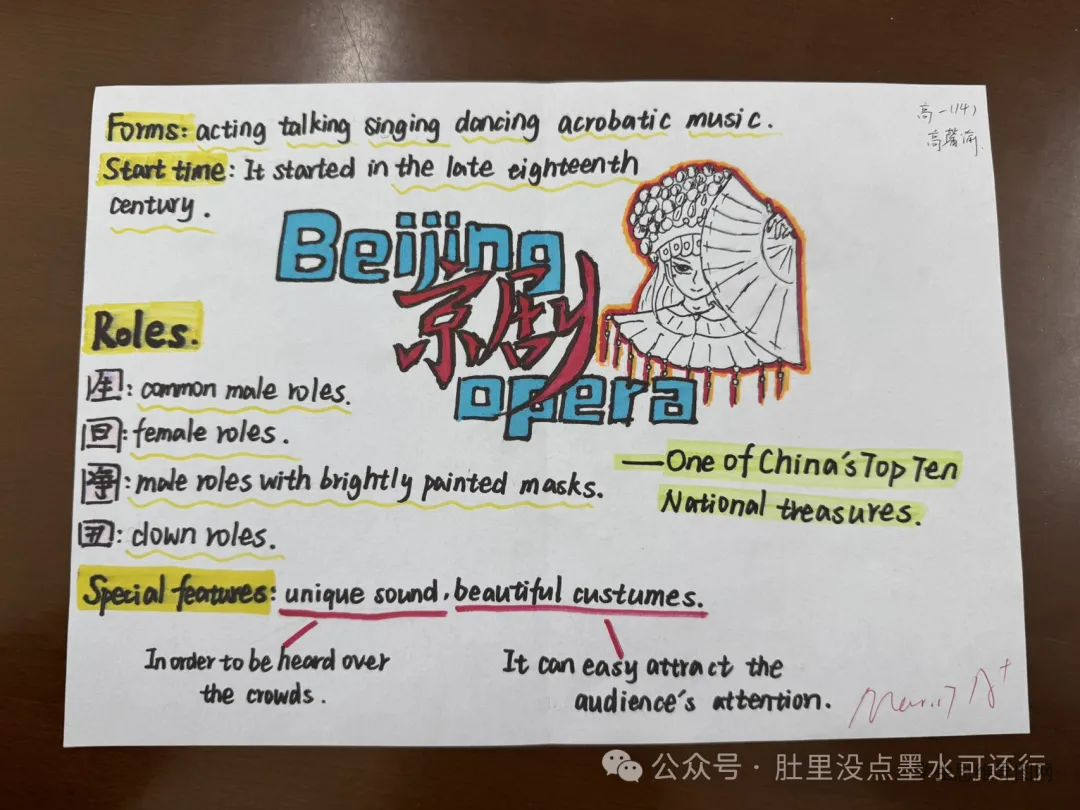 Forms: acting talking singing dancing acrobatic music.
高一(14)
Start time: It started in the late eighteenth
century.
Beijing
京剧
opera
Roles.
生: common male roles.
旦: female roles.
净: male roles with brightly painted masks.
丑: clown roles.
—One of China's Top Ten
National treasures.
Special features: unique sound, beautiful custumes.
In order to be heard over
the crowds.
It can easy attract the
audience's attention.
A+
公众号·肚里没点墨水可还行